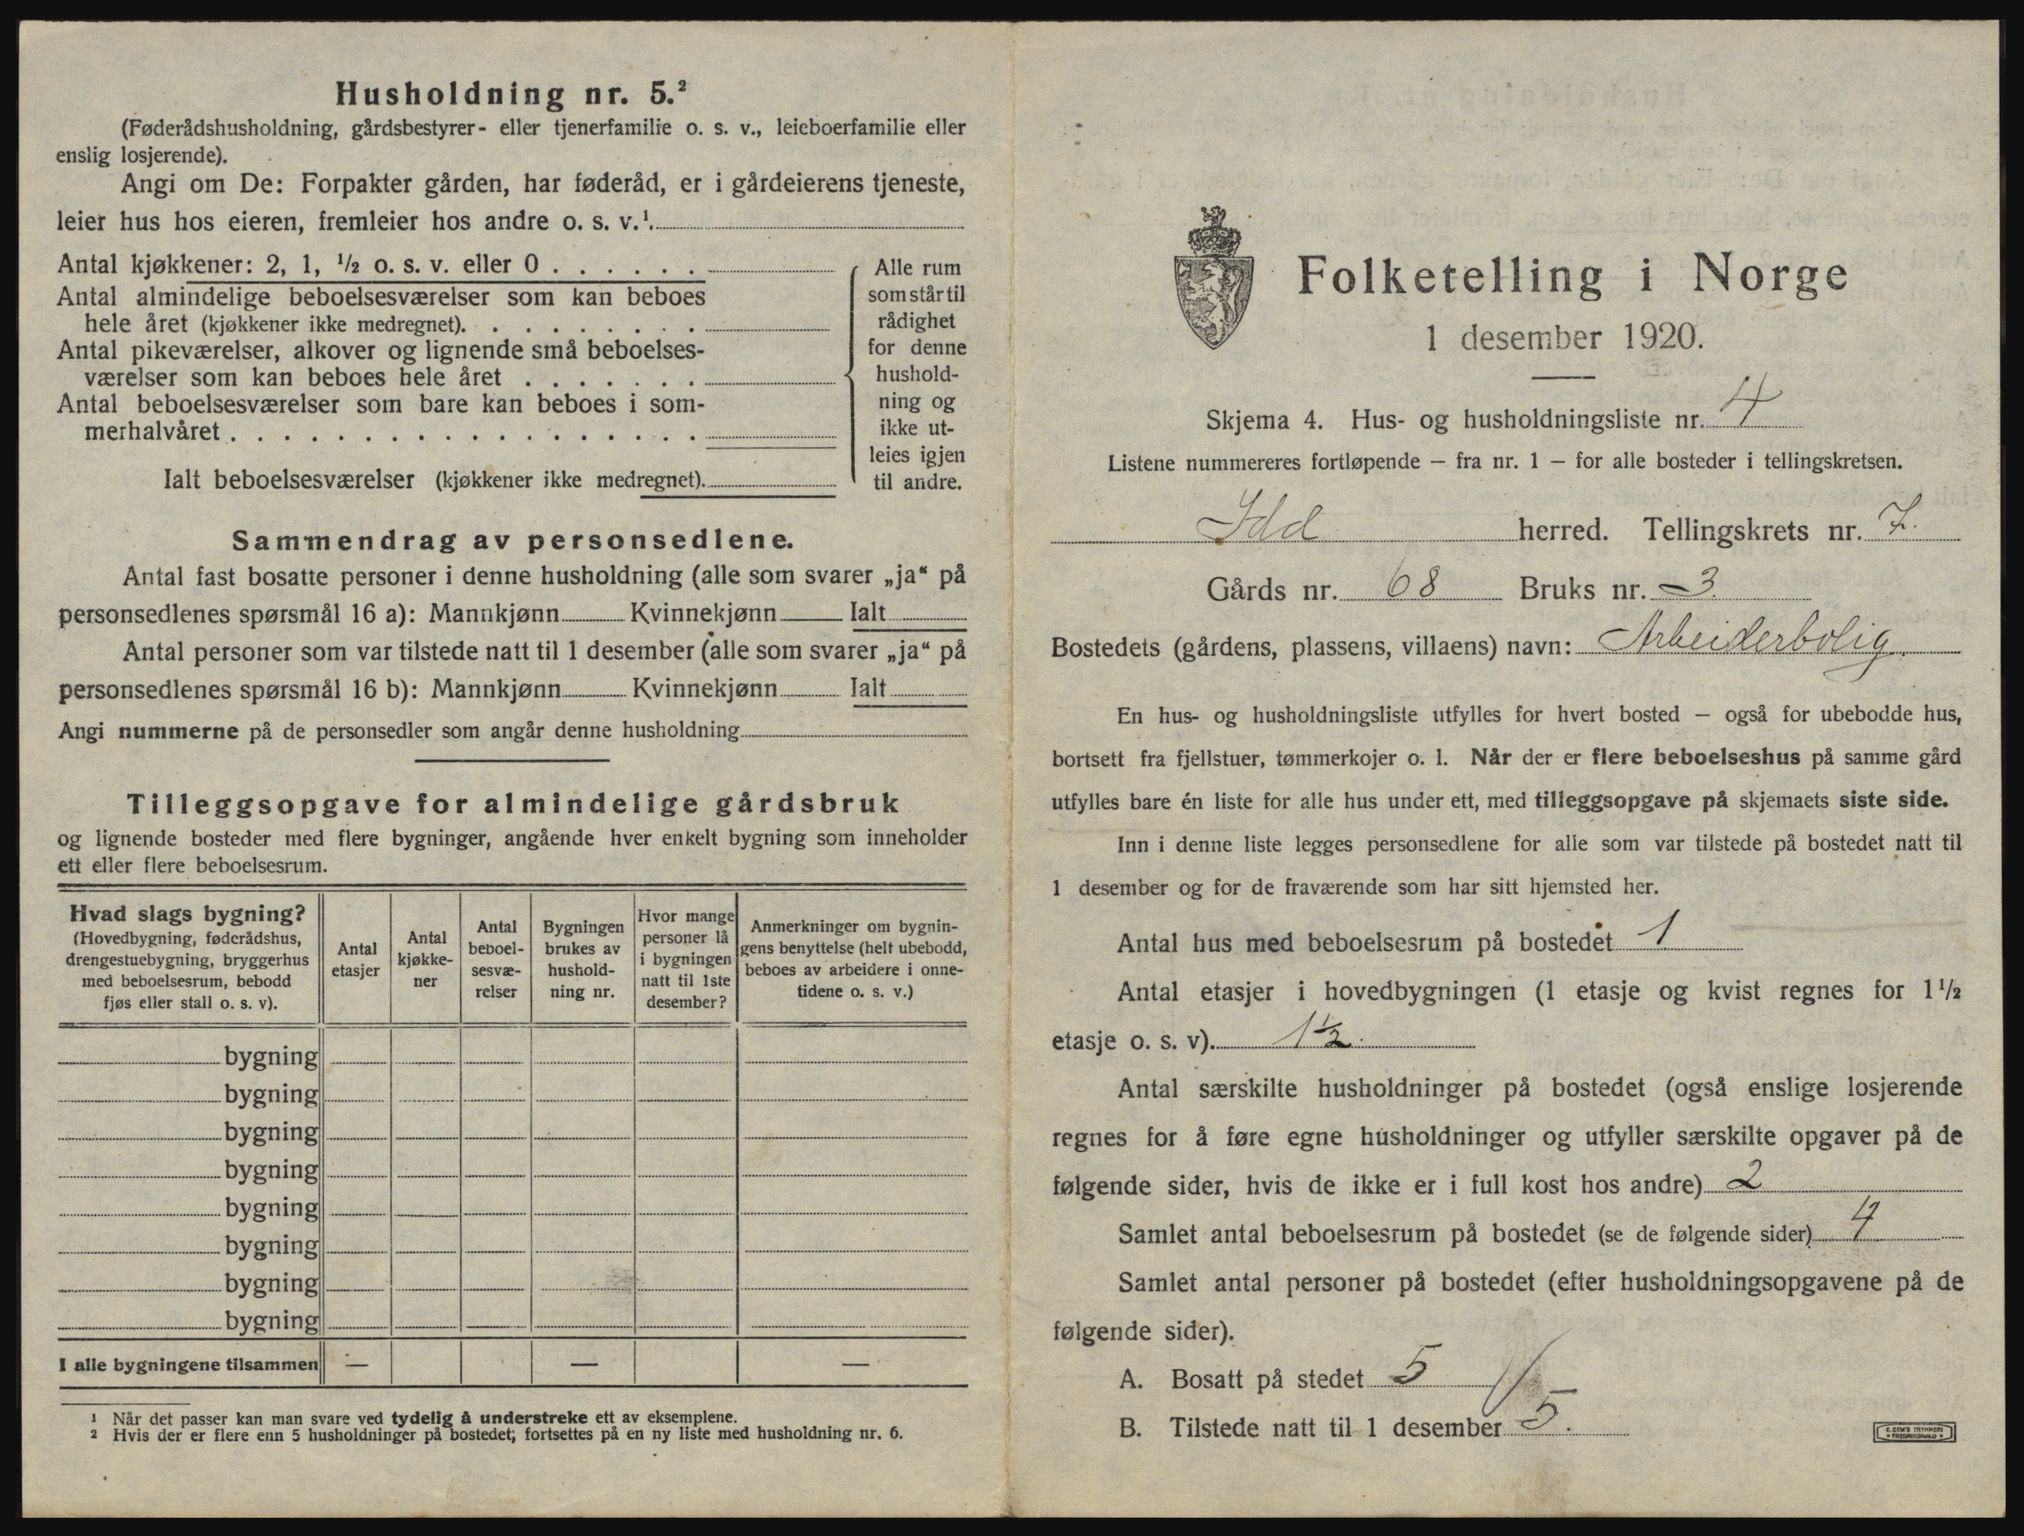 Husholdning nr. 5.²
(Føderådshusholdning, gårdsbestyrer- eller tjenerfamilie o. s. v., leieboerfamilie eller
enslig losjerende).
Angi om De: Forpakter gården, har føderåd, er i gårdeierens tjeneste,
leier hus hos eieren, fremleier hos andre o. s. v.¹.
Antal kjøkkener: 2, 1, ½ o. s. v. eller 0 . . . . . .
Antal almindelige beboelsesværelser som kan beboes
hele året (kjøkkener ikke medregnet). . . . . . . . .
Antal pikeværelser, alkover og lignende små beboelses-
værelser som kan beboes hele året . . . . . . .
Antal beboelsesværelser som bare kan beboes i som-
merhalvåret . . . . . . . . . . . . . . . . . .
Ialt beboelsesværelser (kjøkkener ikke medregnet).
Alle rum
som står til
rådighet
for denne
hushold-
ning og
ikke ut-
leies igjen
til andre.
Sammendrag av personsedlene.
Antal fast bosatte personer i denne husholdning (alle som svarer „ja“ på
personsedlenes spørsmål 16 a): Mannkjønn Kvinnekjønn Ialt
Antal personer som var tilstede natt til 1 desember (alle som svarer „ja“ på
personsedlenes spørsmål 16 b): Mannkjønn Kvinnekjønn Ialt
Angi nummerne på de personsedler som angår denne husholdning
Tilleggsopgave for almindelige gårdsbruk
og lignende bosteder med flere bygninger, angående hver enkelt bygning som inneholder
ett eller flere beboelsesrum.
Hvad slags bygning?
(Hovedbygning, føderådshus,
drengestuebygning, bryggerhus
med beboelsesrum, bebodd
fjøs eller stall o. s. v).
Antal
etasjer
Antal
kjøkke-
ner
Antal
beboel-
sesvæ-
relser
Bygningen
brukes av
hushold-
ning nr.
Hvor mange
personer lå
i bygningen
natt til 1ste
desember?
Anmerkninger om bygnin-
gens benyttelse (helt ubebodd,
beboes av arbeidere i onne-
tidene o. s. v.)
bygning
bygning
bygning
bygning
bygning
bygning
bygning
bygning
I alle bygningene tilsammen — — —
¹ Når det passer kan man svare ved tydelig å understreke ett av eksemplene.
² Hvis der er flere enn 5 husholdninger på bostedet; fortsettes på en ny liste med husholdning nr. 6.
Folketelling i Norge
1 desember 1920.
Skjema 4. Hus- og husholdningsliste nr. 4
Listene nummereres fortløpende – fra nr. 1 – for alle bosteder i tellingskretsen.
Idd herred. Tellingskrets nr. 7.
Gårds nr. 68 Bruks nr. 3.
Bostedets (gårdens, plassens, villaens) navn: Arbeiderbolig.
En hus- og husholdningsliste utfylles for hvert bosted – også for ubebodde hus,
bortsett fra fjellstuer, tømmerkojer o. l. Når der er flere beboelseshus på samme gård
utfylles bare én liste for alle hus under ett, med tilleggsopgave på skjemaets siste side.
Inn i denne liste legges personsedlene for alle som var tilstede på bostedet natt til
1 desember og for de fraværende som har sitt hjemsted her.
Antal hus med beboelsesrum på bostedet 1
Antal etasjer i hovedbygningen (1 etasje og kvist regnes for 1½
etasje o. s. v). 1½.
Antal særskilte husholdninger på bostedet (også enslige losjerende
regnes for å føre egne husholdninger og utfyller særskilte opgaver på de
følgende sider, hvis de ikke er i full kost hos andre) 2
Samlet antal beboelsesrum på bostedet (se de følgende sider) 4
Samlet antal personer på bostedet (efter husholdningsopgavene på de
følgende sider).
A. Bosatt på stedet 5
B. Tilstede natt til 1 desember 5.
E. SEM'S TRYKKERI
FREDRIKSHALD